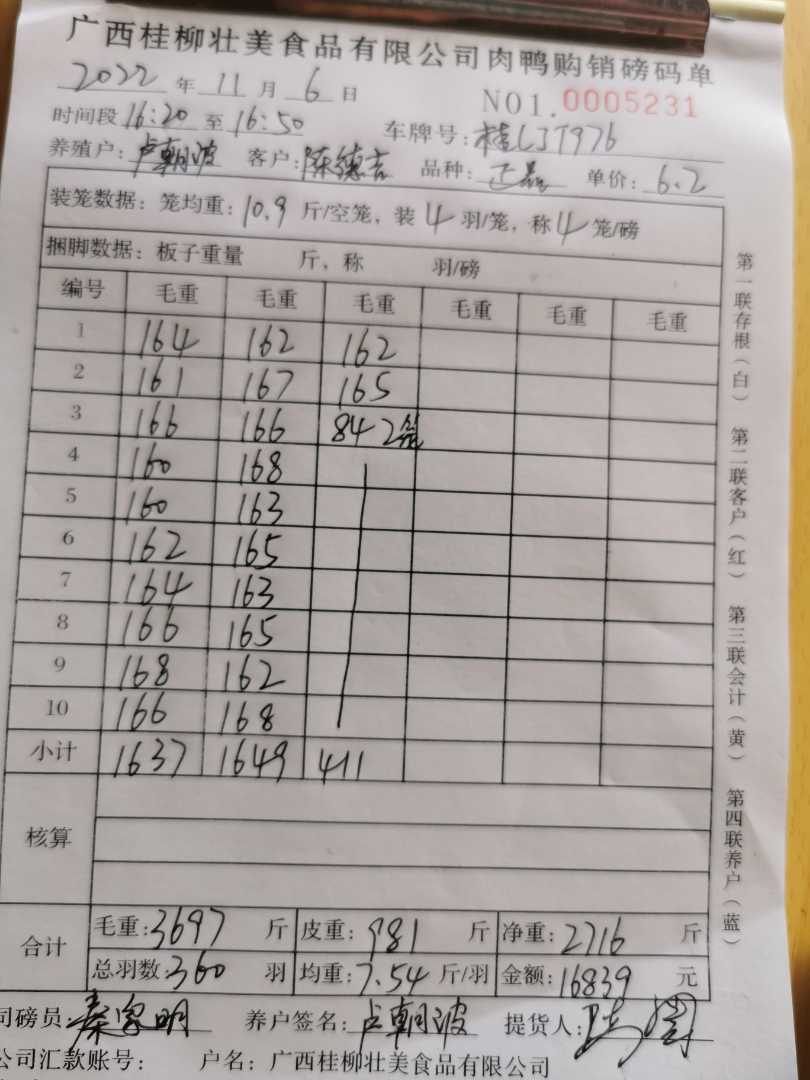 广西桂柳壮美食品有限公司肉鸭购销磅码单
2022 年 11 月 6 日 NO1.0005231
时间段 16:20 至 16:50 车牌号: 桂LJT976
养殖户: 卢朝波 客户: 陈德吉 品种: 单价: 6.2
装笼数据: 笼均重: 10.9 斤/空笼, 装 4 羽/笼, 称 4 笼/磅
捆脚数据: 板子重量 斤, 称 羽/磅
编号 毛重 毛重 毛重 毛重 毛重 毛重
1 164 162 162
2 161 167 165
3 166 166 84 2笼
4 160 168
5 160 163
6 162 165
7 164 163
8 166 165
9 168 162
10 166 168
小计 1637 1649 411
核算
合计
毛重: 3697 斤 皮重: 981 斤 净重: 2716 斤
总羽数: 360 羽 均重: 7.54 斤/羽 金额: 16839 元
司磅员: 秦家明 养户签名: 卢朝波 提货人:
公司汇款账号: 户名: 广西桂柳壮美食品有限公司
第一联存根(白) 第二联客户(红) 第三联会计(黄) 第四联养户(蓝)